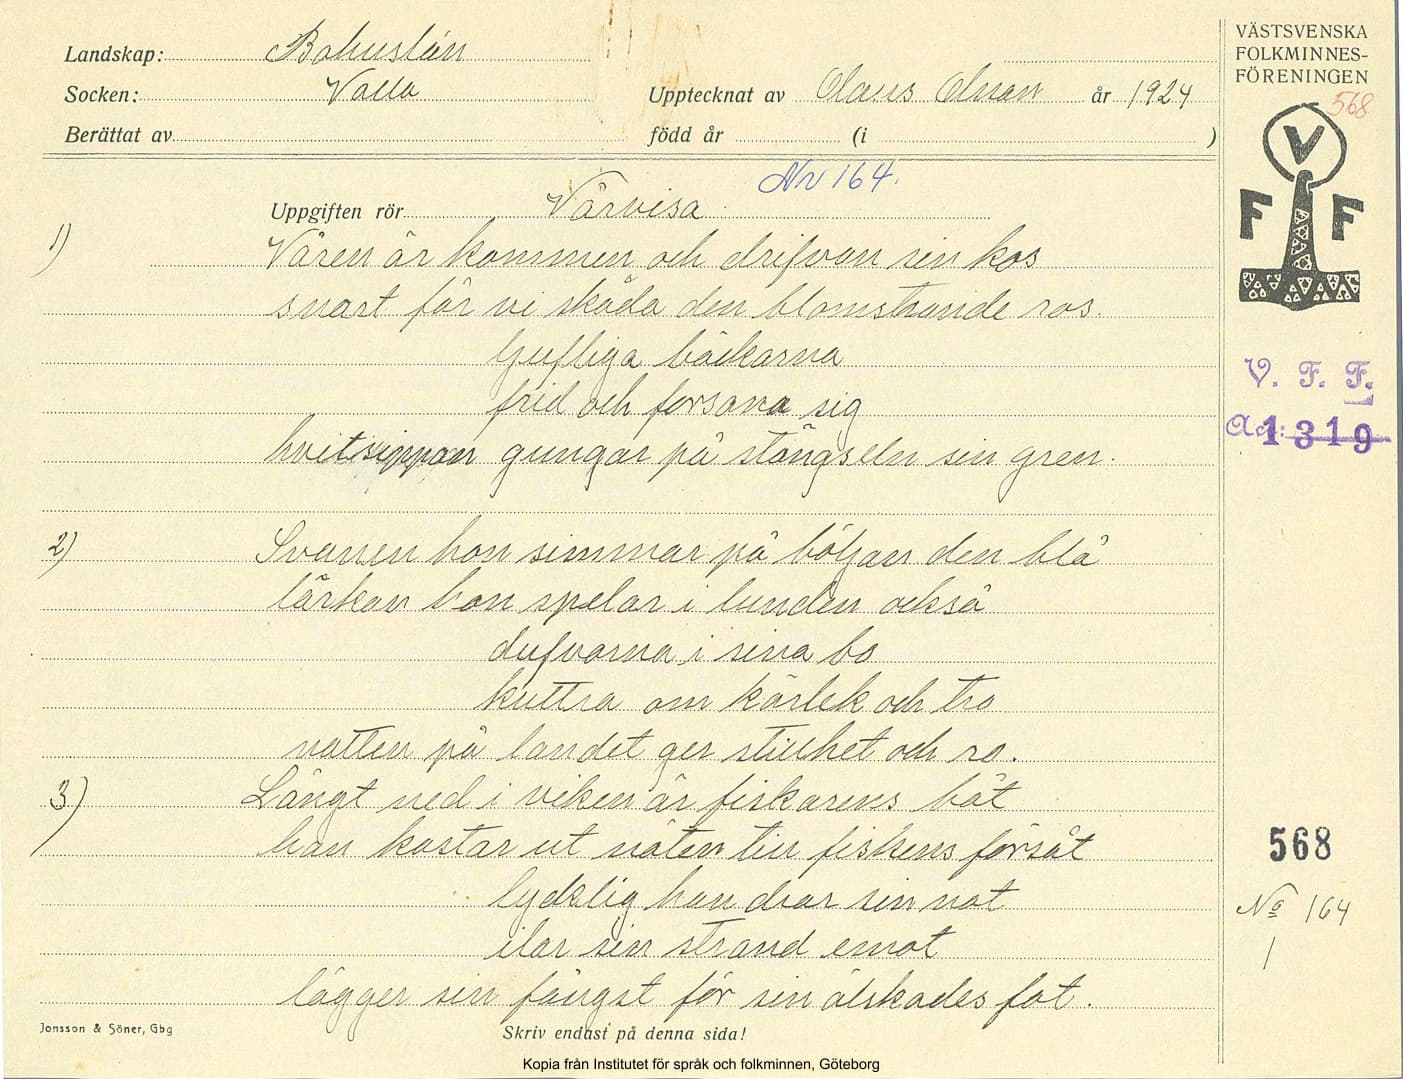 Landskap: Bohuslän
Socken: Valla
Upptecknat av Olaus Olsson år 1924
Berättat av
född år (i )
VÄSTSVENSKA
FOLKMINNES-
FÖRENINGEN
568
V
F F
Nr 164.
Uppgiften rör Vårvisa
1) Våren är kommen och drifvan sin kos
snart får vi skåda den blomstrande ros.
ljufliga bäckarna
frid och forsara sig
hvitsippan gungar på stängseln sin gren.
V. F. F.
Acc: 1319
2) Svanen hon simmar på böljan den blå
lärkan hon spelar i lunden också
dufvorna i sina bo
kuttra om kärlek och tro
natten på landet ger stillhet och ro.
3) Långt ned i viken är fiskarens båt
han kastar ut näten till fiskens försåt
lydelig han drar sin not
ilar sin strand emot
lägger sin fångst för sin älskades fot.
568
No 164
1
Jonsson & Söner, Gbg
Skriv endast på denna sida!
Kopia från Institutet för språk och folkminnen, Göteborg